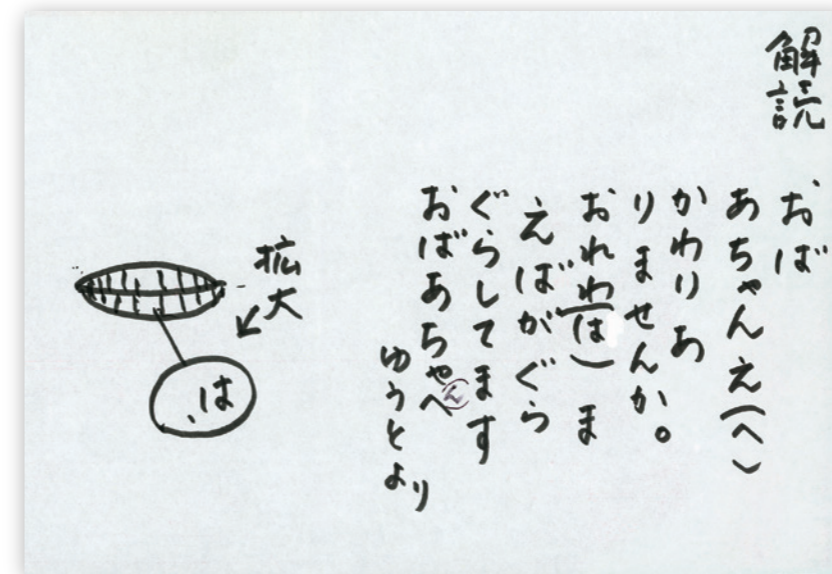 解読
おば
あちゃんえ(へ)
かわりあ
りませんか。
おれわ(は)ま
えばがぐら
ぐらしてます
おばあちゃんへ
ゆうとより
拡大
は